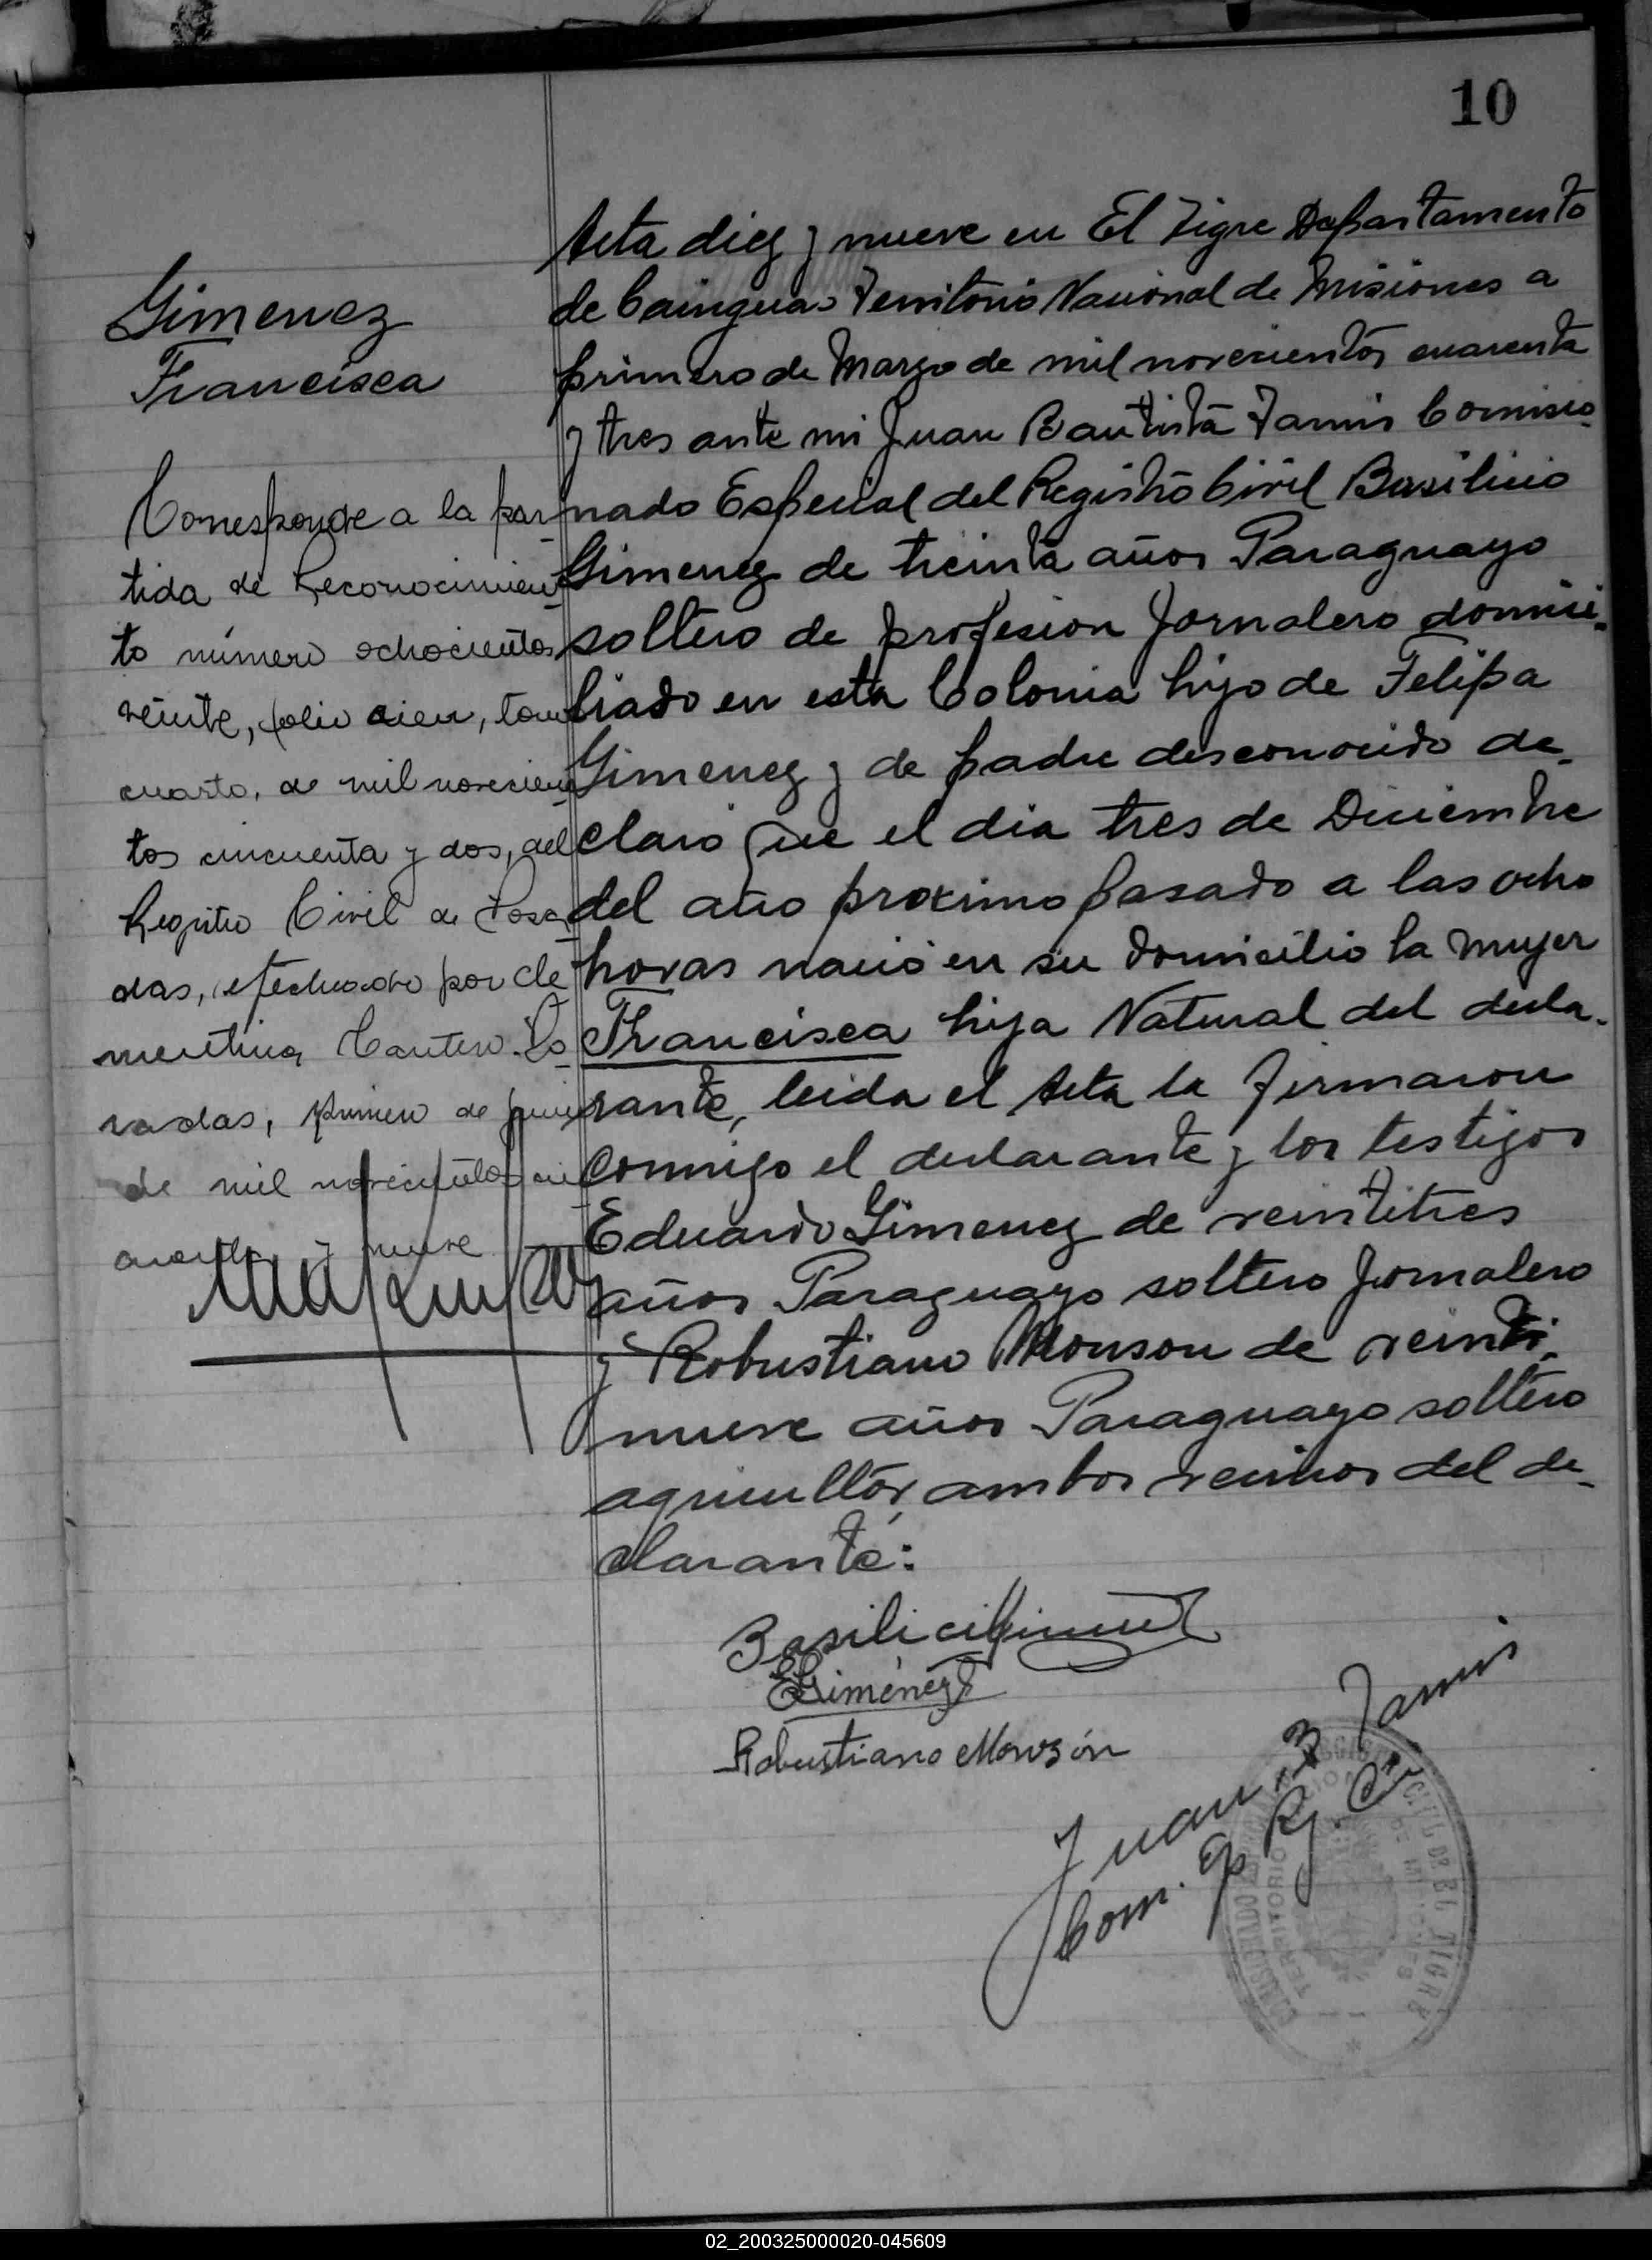 10
Gimenez
Francisca
Corresponde a la par-
tida de Reconocimien-
to número ochocientos
veinte, folio cien, tomo
cuarto, de mil novecien-
tos cincuenta y dos, del
Registro Civil de Posa-
das, efectuado por Cle-
mentina Cantero. Po-
sadas, primero de
de mil novecientos cin-
cuenta y nueve
Acta diez y nueve en El Tigre Departamento
de Cainguas Territorio Nacional de Misiones a
primero de Marzo de mil novecientos cuarenta
y tres ante mi Juan Bautista Tamis Comisio-
nado Especial del Registro Civil Basilicio
Gimenez de treinta años Paraguayo
soltero de profesion Jornalero domici-
liado en esta Colonia hijo de Felipa
Gimenez y de padre desconocido de-
claró que el dia tres de Diciembre
del año proximo pasado a las ocho
horas nació en su domicilio la mujer
Francisca hija Natural del decla-
rante, leida el Acta la firmaron
conmigo el declarante y los testigos
Eduardo Gimenez de veintitres
años Paraguayo soltero Jornalero
y Robustiano Monson de veinti-
nueve años Paraguayo soltero
agricultor, ambos vecinos del de-
clarante:
Basilici Gimenez
E Giménez
Robustiano Monzón
Juan B Tamis
Com. Ep Rg. Ci
CIVIL DE EL TIGRE
TERRITORIO
DE MISIONES
02_200325000020-045609